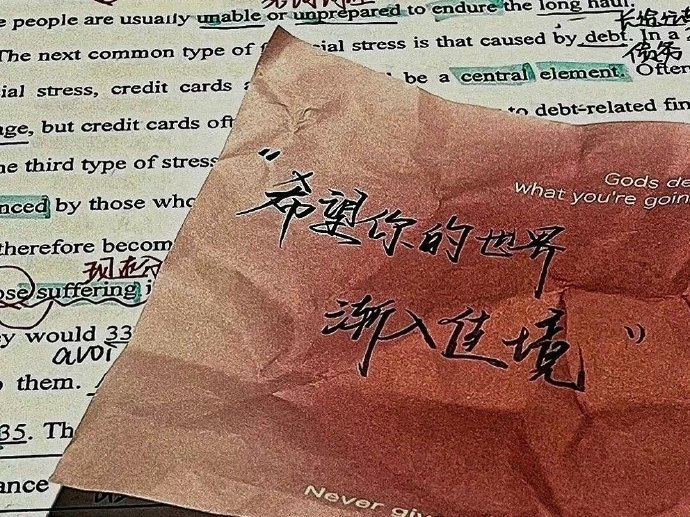 e people are usually unable or unprepared to endure the long haul.
长
The next common type of cial stress is that caused by debt. In a 2
债务
ial stress, credit cards be a central element. Often
age, but credit cards oft to debt-related fin
he third type of stress
nced by those who
therefore becom
现在分
ose suffering i
ey would 33
avoi
o them.
35. Th
ance
Gods de
what you're goin
“希望你的世界
渐入佳境”
Never giv